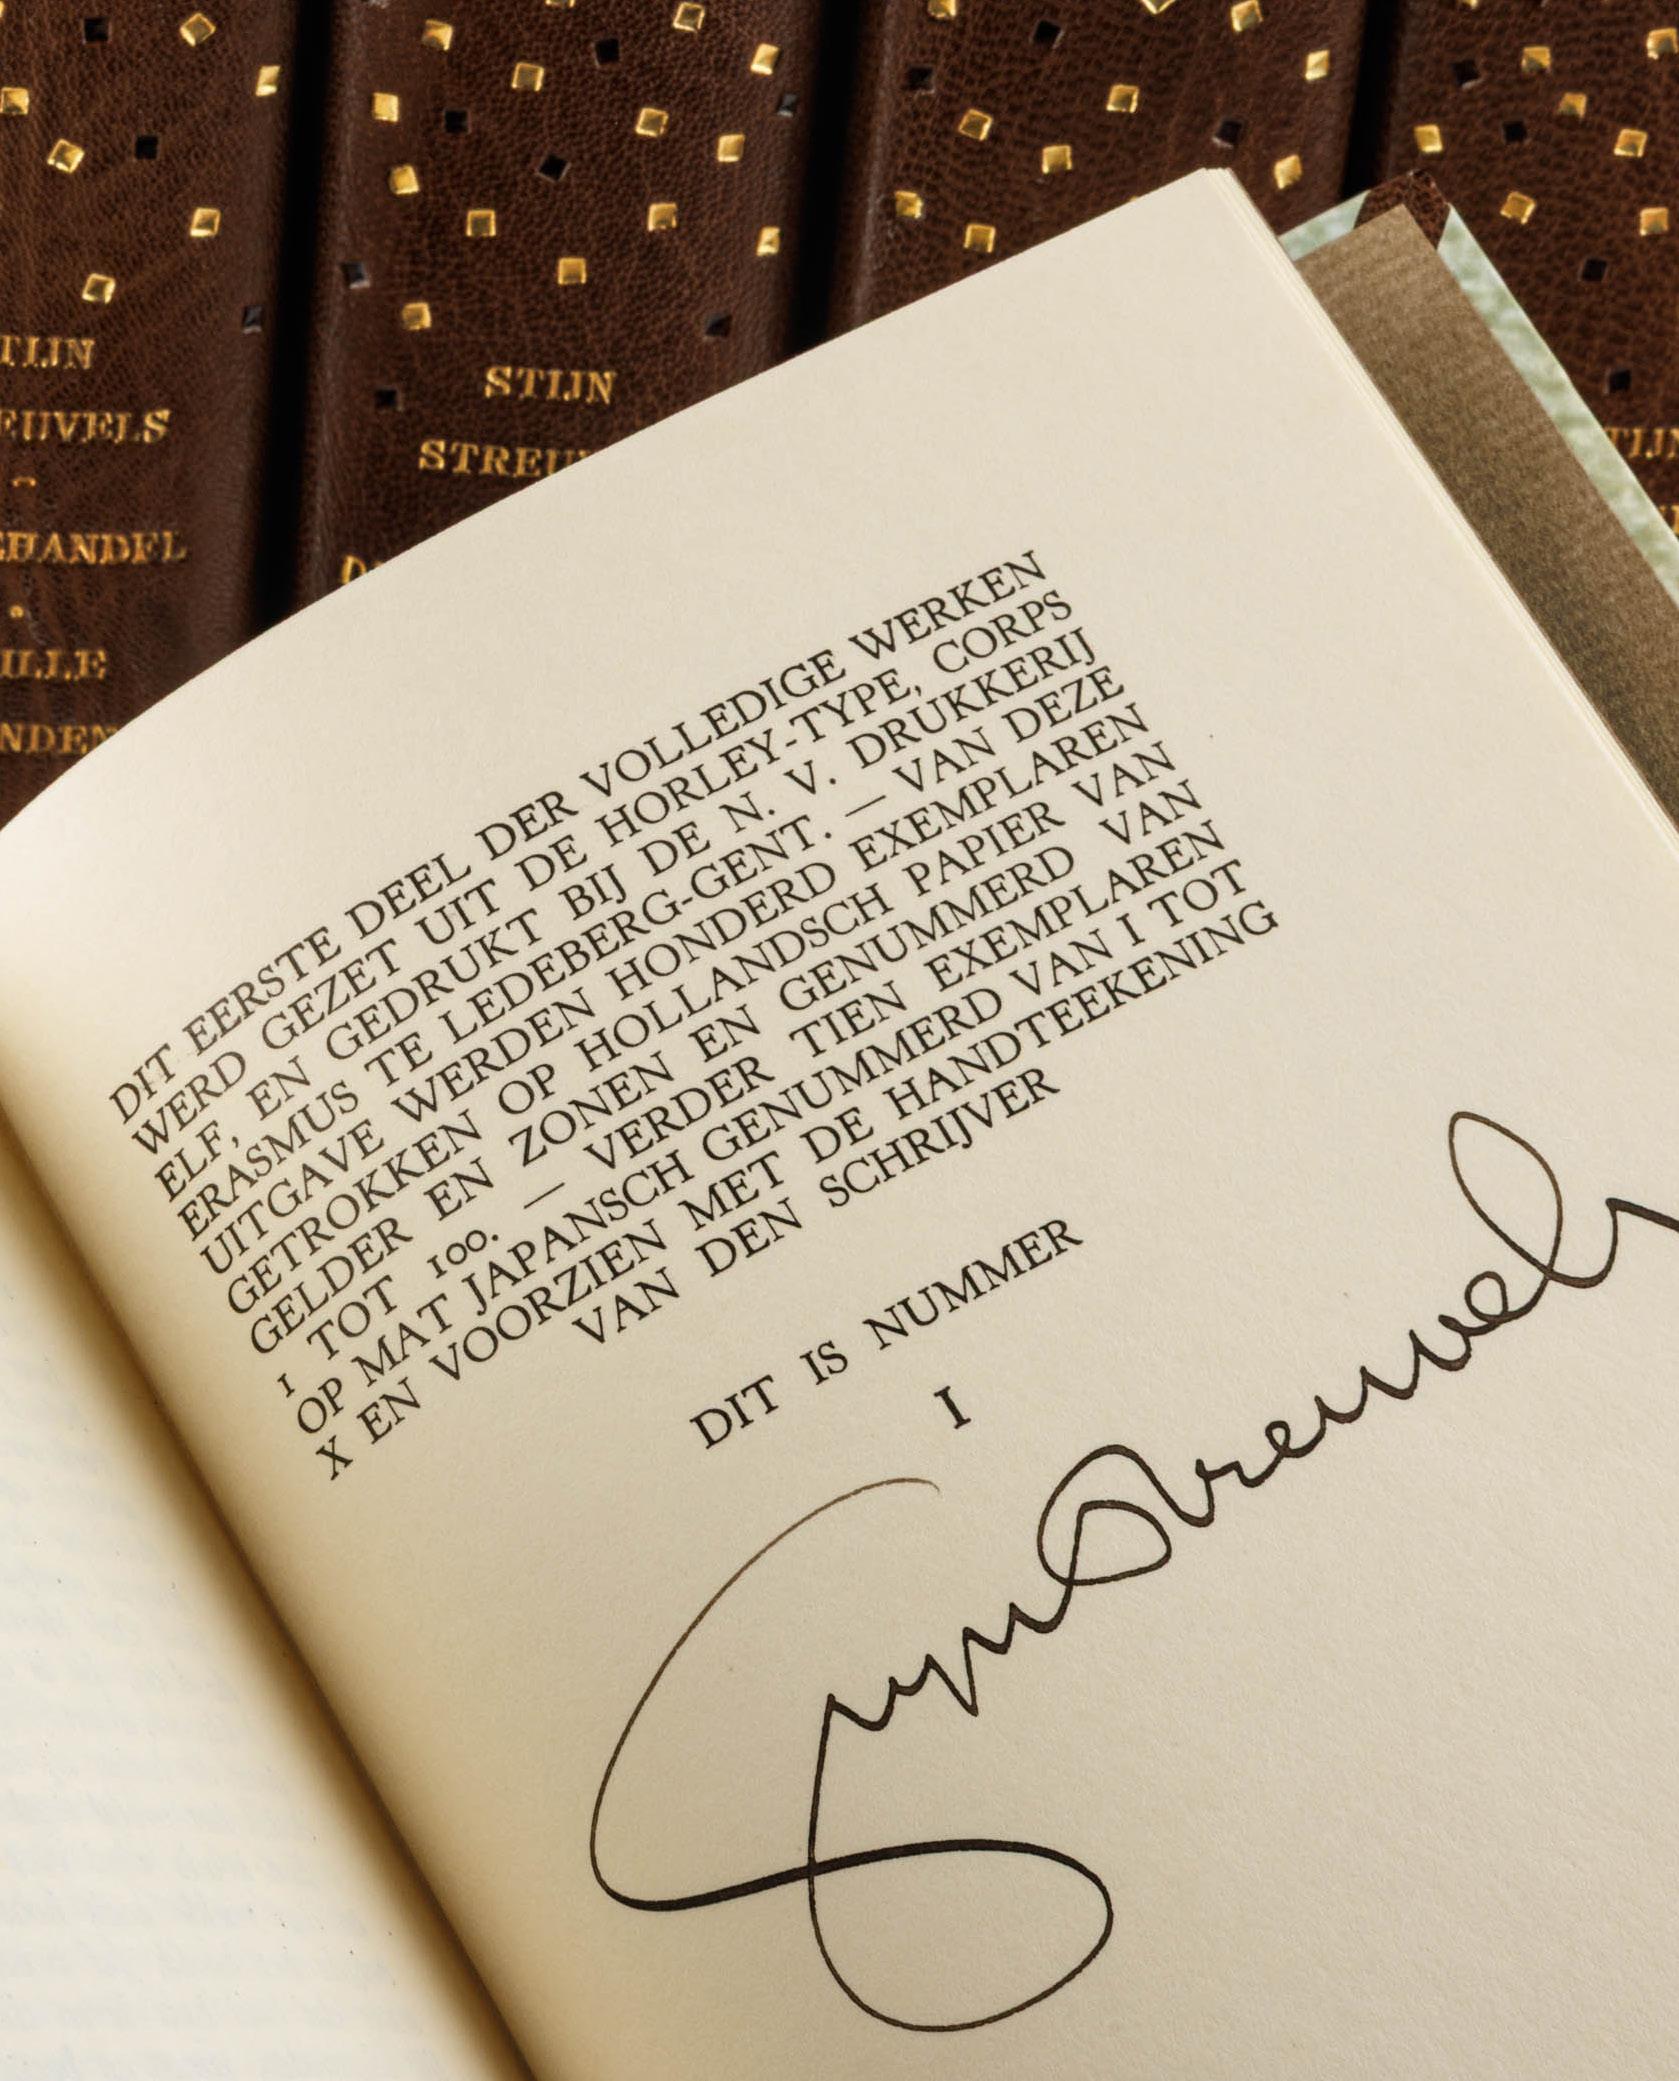 TIJN
EUVELS
HANDEL
ILLE
NDEN
STIJN
STREU
TIJN
DIT EERSTE DEEL DER VOLLEDIGE WERKEN
WERD GEZET UIT DE HORLEY-TYPE, CORPS
ELF, EN GEDRUKT BIJ DE N. V. DRUKKERIJ
ERASMUS TE LEDEBERG-GENT. — VAN DEZE
UITGAVE WERDEN HONDERD EXEMPLAREN
GETROKKEN OP HOLLANDSCH PAPIER VAN
GELDER EN ZONEN EN GENUMMERD VAN
1 TOT 100. — VERDER TIEN EXEMPLAREN
OP MAT JAPANSCH GENUMMERD VAN I TOT
X EN VOORZIEN MET DE HANDTEEKENING
VAN DEN SCHRIJVER
DIT IS NUMMER
I
Stijn Streuvels